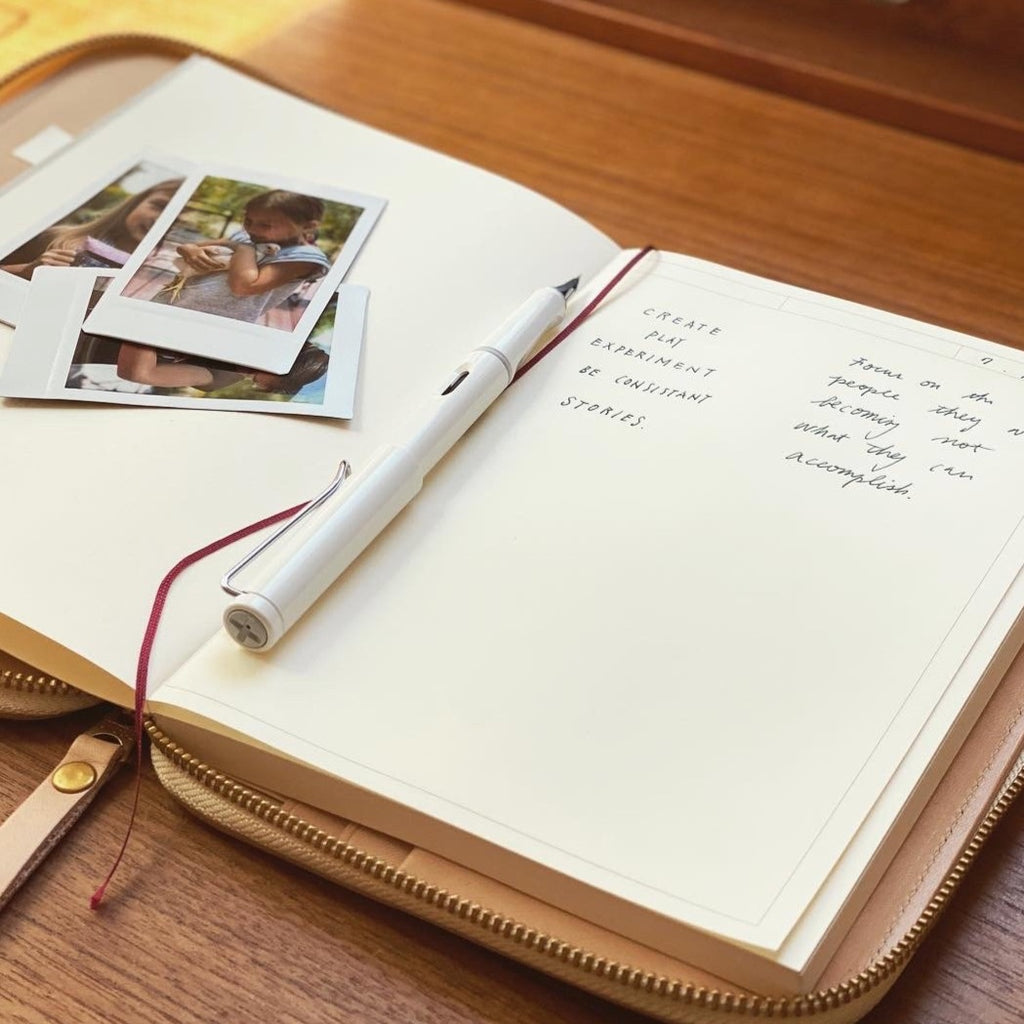 CREATE
PLAY
EXPERIMENT
BE CONSISTANT
STORIES.
Focus on the
people they
becoming not
what they can
accomplish.